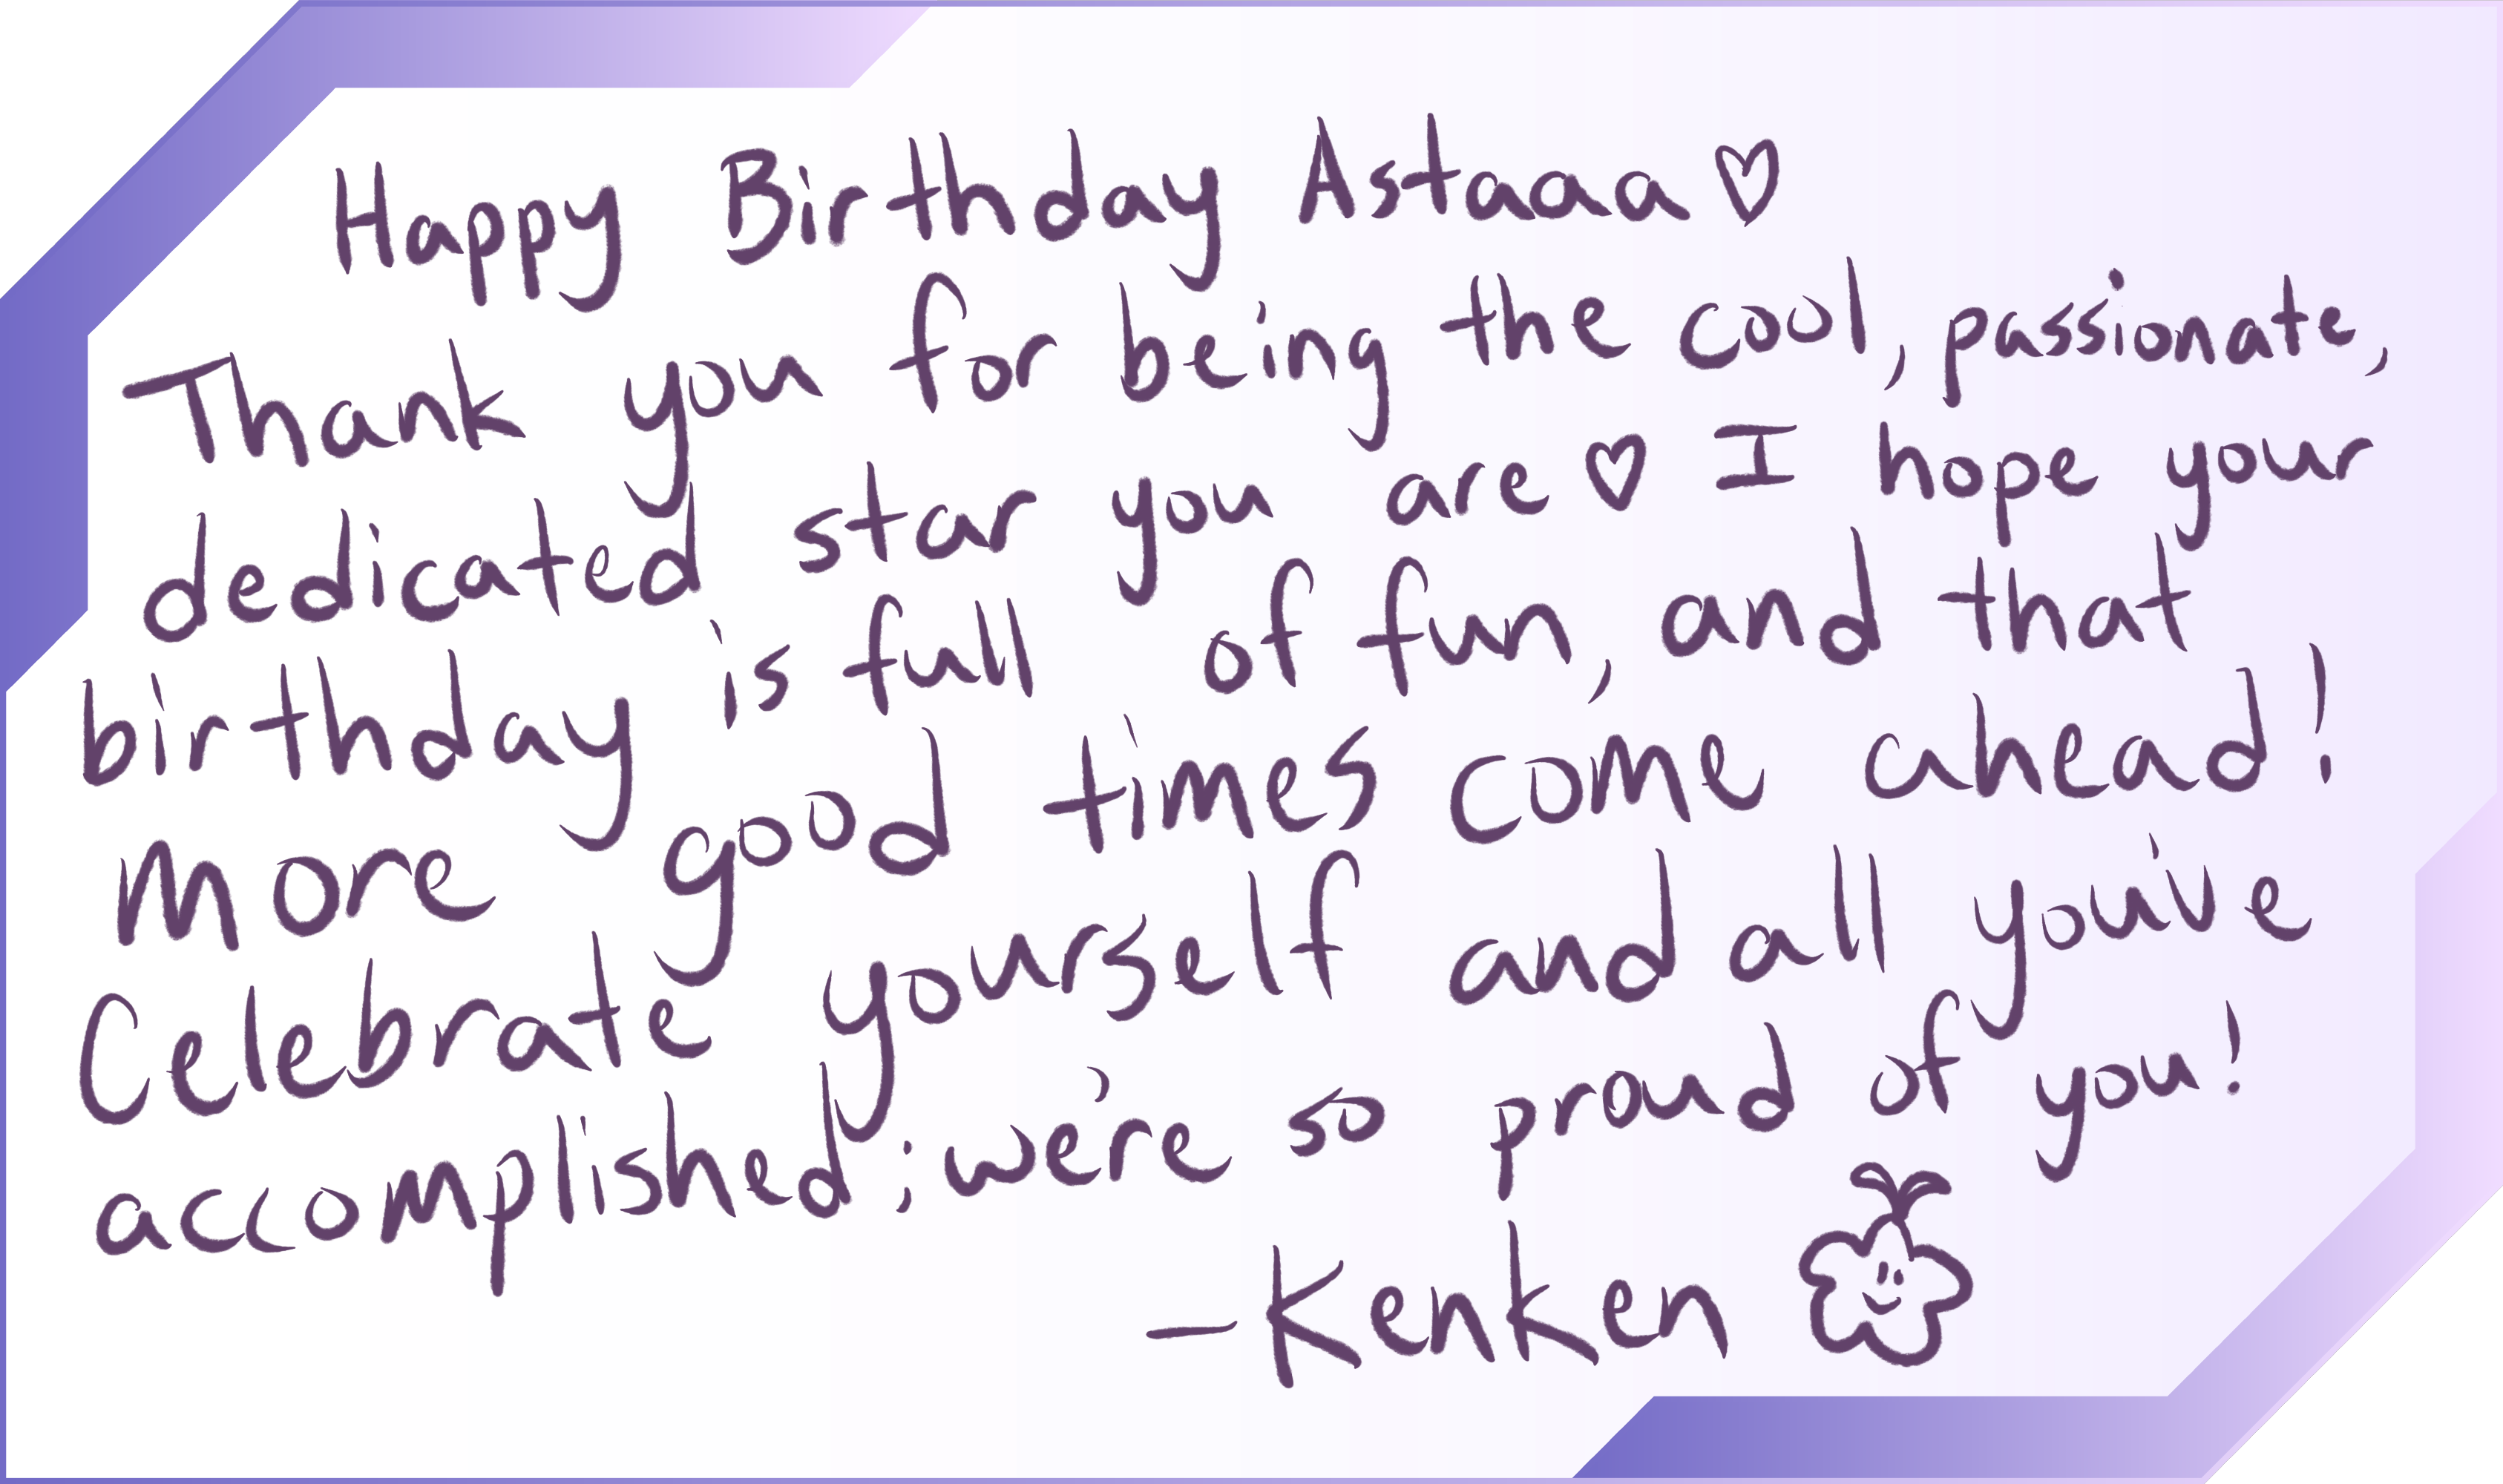 Happy Birthday Astaaa♡
Thank you for being the cool, passionate,
dedicated star you are ♡ I hope your
birthday is full of fun, and that
more good times come ahead!
Celebrate yourself and all you've
accomplished; we're so proud of you!
—Kenken